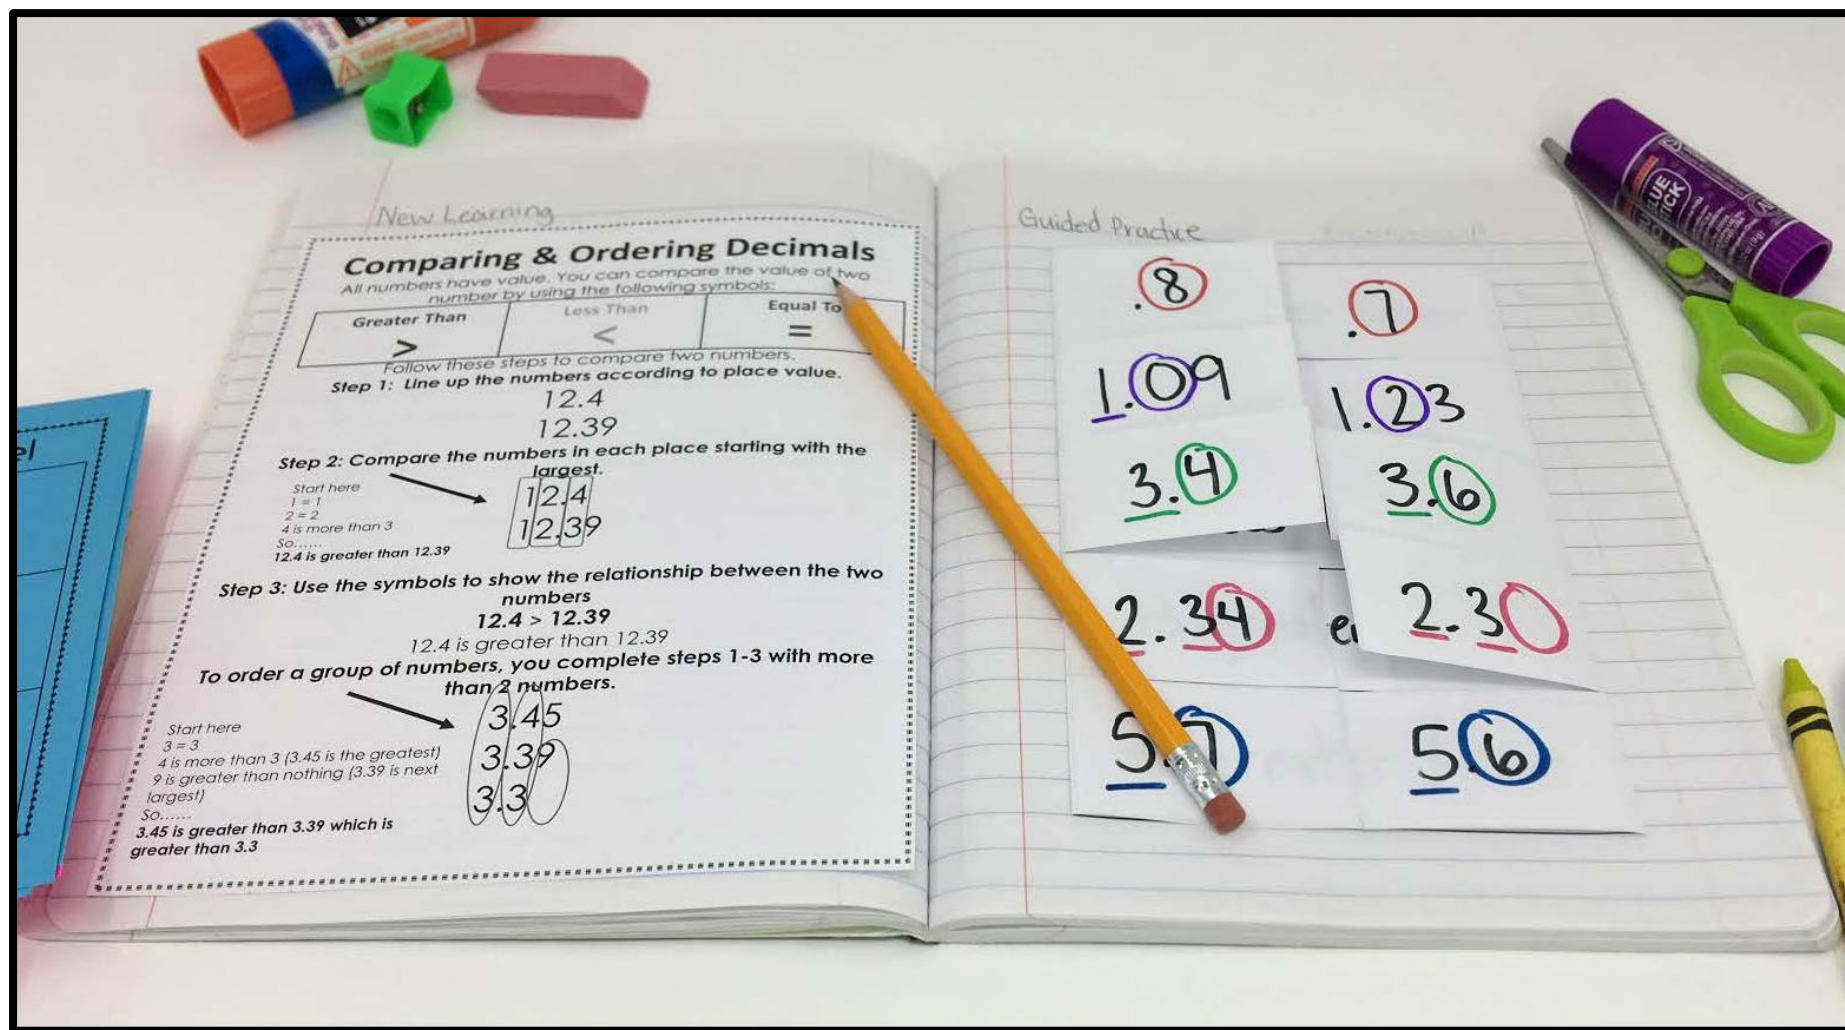 New Learning
Comparing & Ordering Decimals
All numbers have value. You can compare the value of two
number by using the following symbols:
Greater Than
>
Less Than
<
Equal To
=
Follow these steps to compare two numbers.
Step 1: Line up the numbers according to place value.
12.4
12.39
Step 2: Compare the numbers in each place starting with the
largest.
Start here
1 = 1
2 = 2
4 is more than 3
So......
12.4 is greater than 12.39
12.4
12.39
Step 3: Use the symbols to show the relationship between the two
numbers
12.4 > 12.39
12.4 is greater than 12.39
To order a group of numbers, you complete steps 1-3 with more
than 2 numbers.
Start here
3 = 3
4 is more than 3 (3.45 is the greatest)
9 is greater than nothing (3.39 is next
largest)
So......
3.45 is greater than 3.39 which is
greater than 3.3
3.45
3.39
3.3
Guided Practice
.8
.7
1.09
1.23
3.4
3.6
2.34
2.3
5.7
5.6